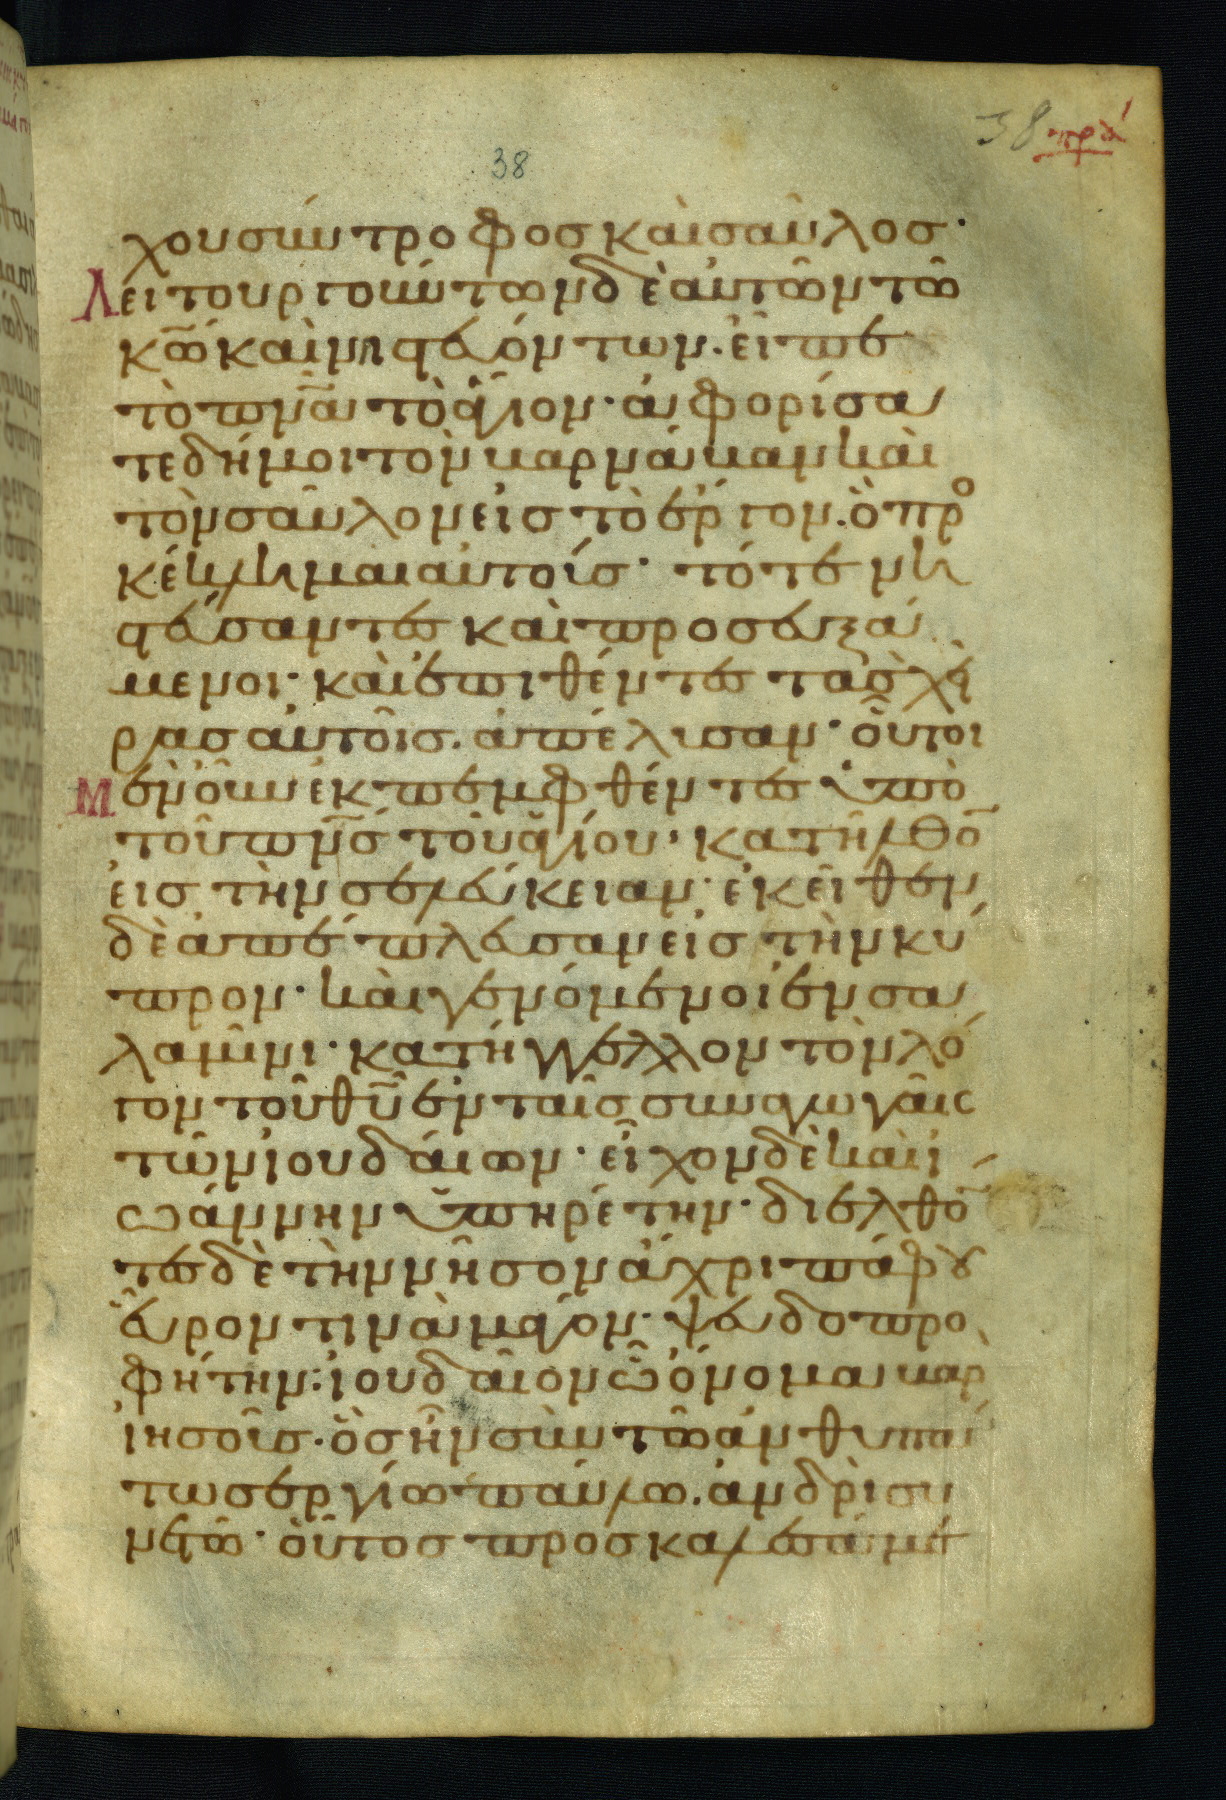 38 πρα
38
χου σύντροφος καὶ σαῦλος·
Λειτουργούντων δὲ αὐτῶν τῶ
κ̅ω̅ καὶ νηστευόντων. εἶπε
τὸ π̅ν̅α̅ τὸ ἅγιον· ἀφορίσα
τε δή μοι τὸν βαρνάβαν καὶ
τὸν σαῦλον εἰς τὸ ἔργον. ὃ προ
κέκλημαι αὐτοίς· τότε νη
στεύσαντες καὶ προσευξά
μενοι· καὶ ἐπιθέντες τὰς χεῖ
ρας αὐτοῖς. ἀπέλυσαν· οὗτοι
Μὲν οὖν ἐκπεμφθέντες ὑπὸ
τοῦ π̅ν̅ς̅ τοῦ ἁγίου· κατῆλθο̅
εἰς τὴν σελεύκειαν· ἐκεῖθεν
δὲ ἀπέπλευσαν εἰς τὴν κύ
προν· καὶ γενόμενοι ἐν σα
λαμῖνι· κατήγγελλον τὸν λό
γον τοῦ θ̅υ̅ ἐν ταῖς συναγωγαῖς
τῶν ἰουδαίων· εἶχον δὲ καὶ ἰ
ωάννην ὑπηρέτην· διελθο̅
τες δὲ τὴν νῆσον ἄχρι πάφου
εὗρον τινὰ μάγον· ψευδοπρο
φήτην· ἰουδαῖον ὧ ὄνομα βαρ
ϊησοῖς· ὃς ἦν σὺν τῶ ἀνθυπά
τω σεργίω παύλω. ἀνδρὶ συ
νετῶ· οὗτος προσκαλεσάμε